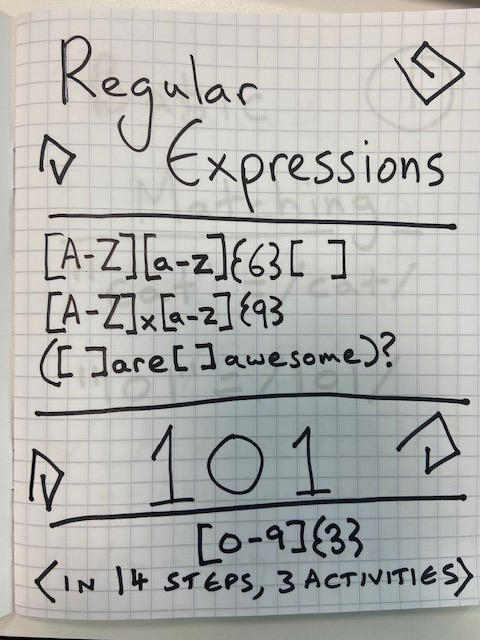 Regular
Expressions
[A-Z][a-z]{6}[ ]
[A-Z]x[a-z]{9}
([ ]are[ ]awesome)?
101
[0-9]{3}
<IN 14 STEPS, 3 ACTIVITIES>